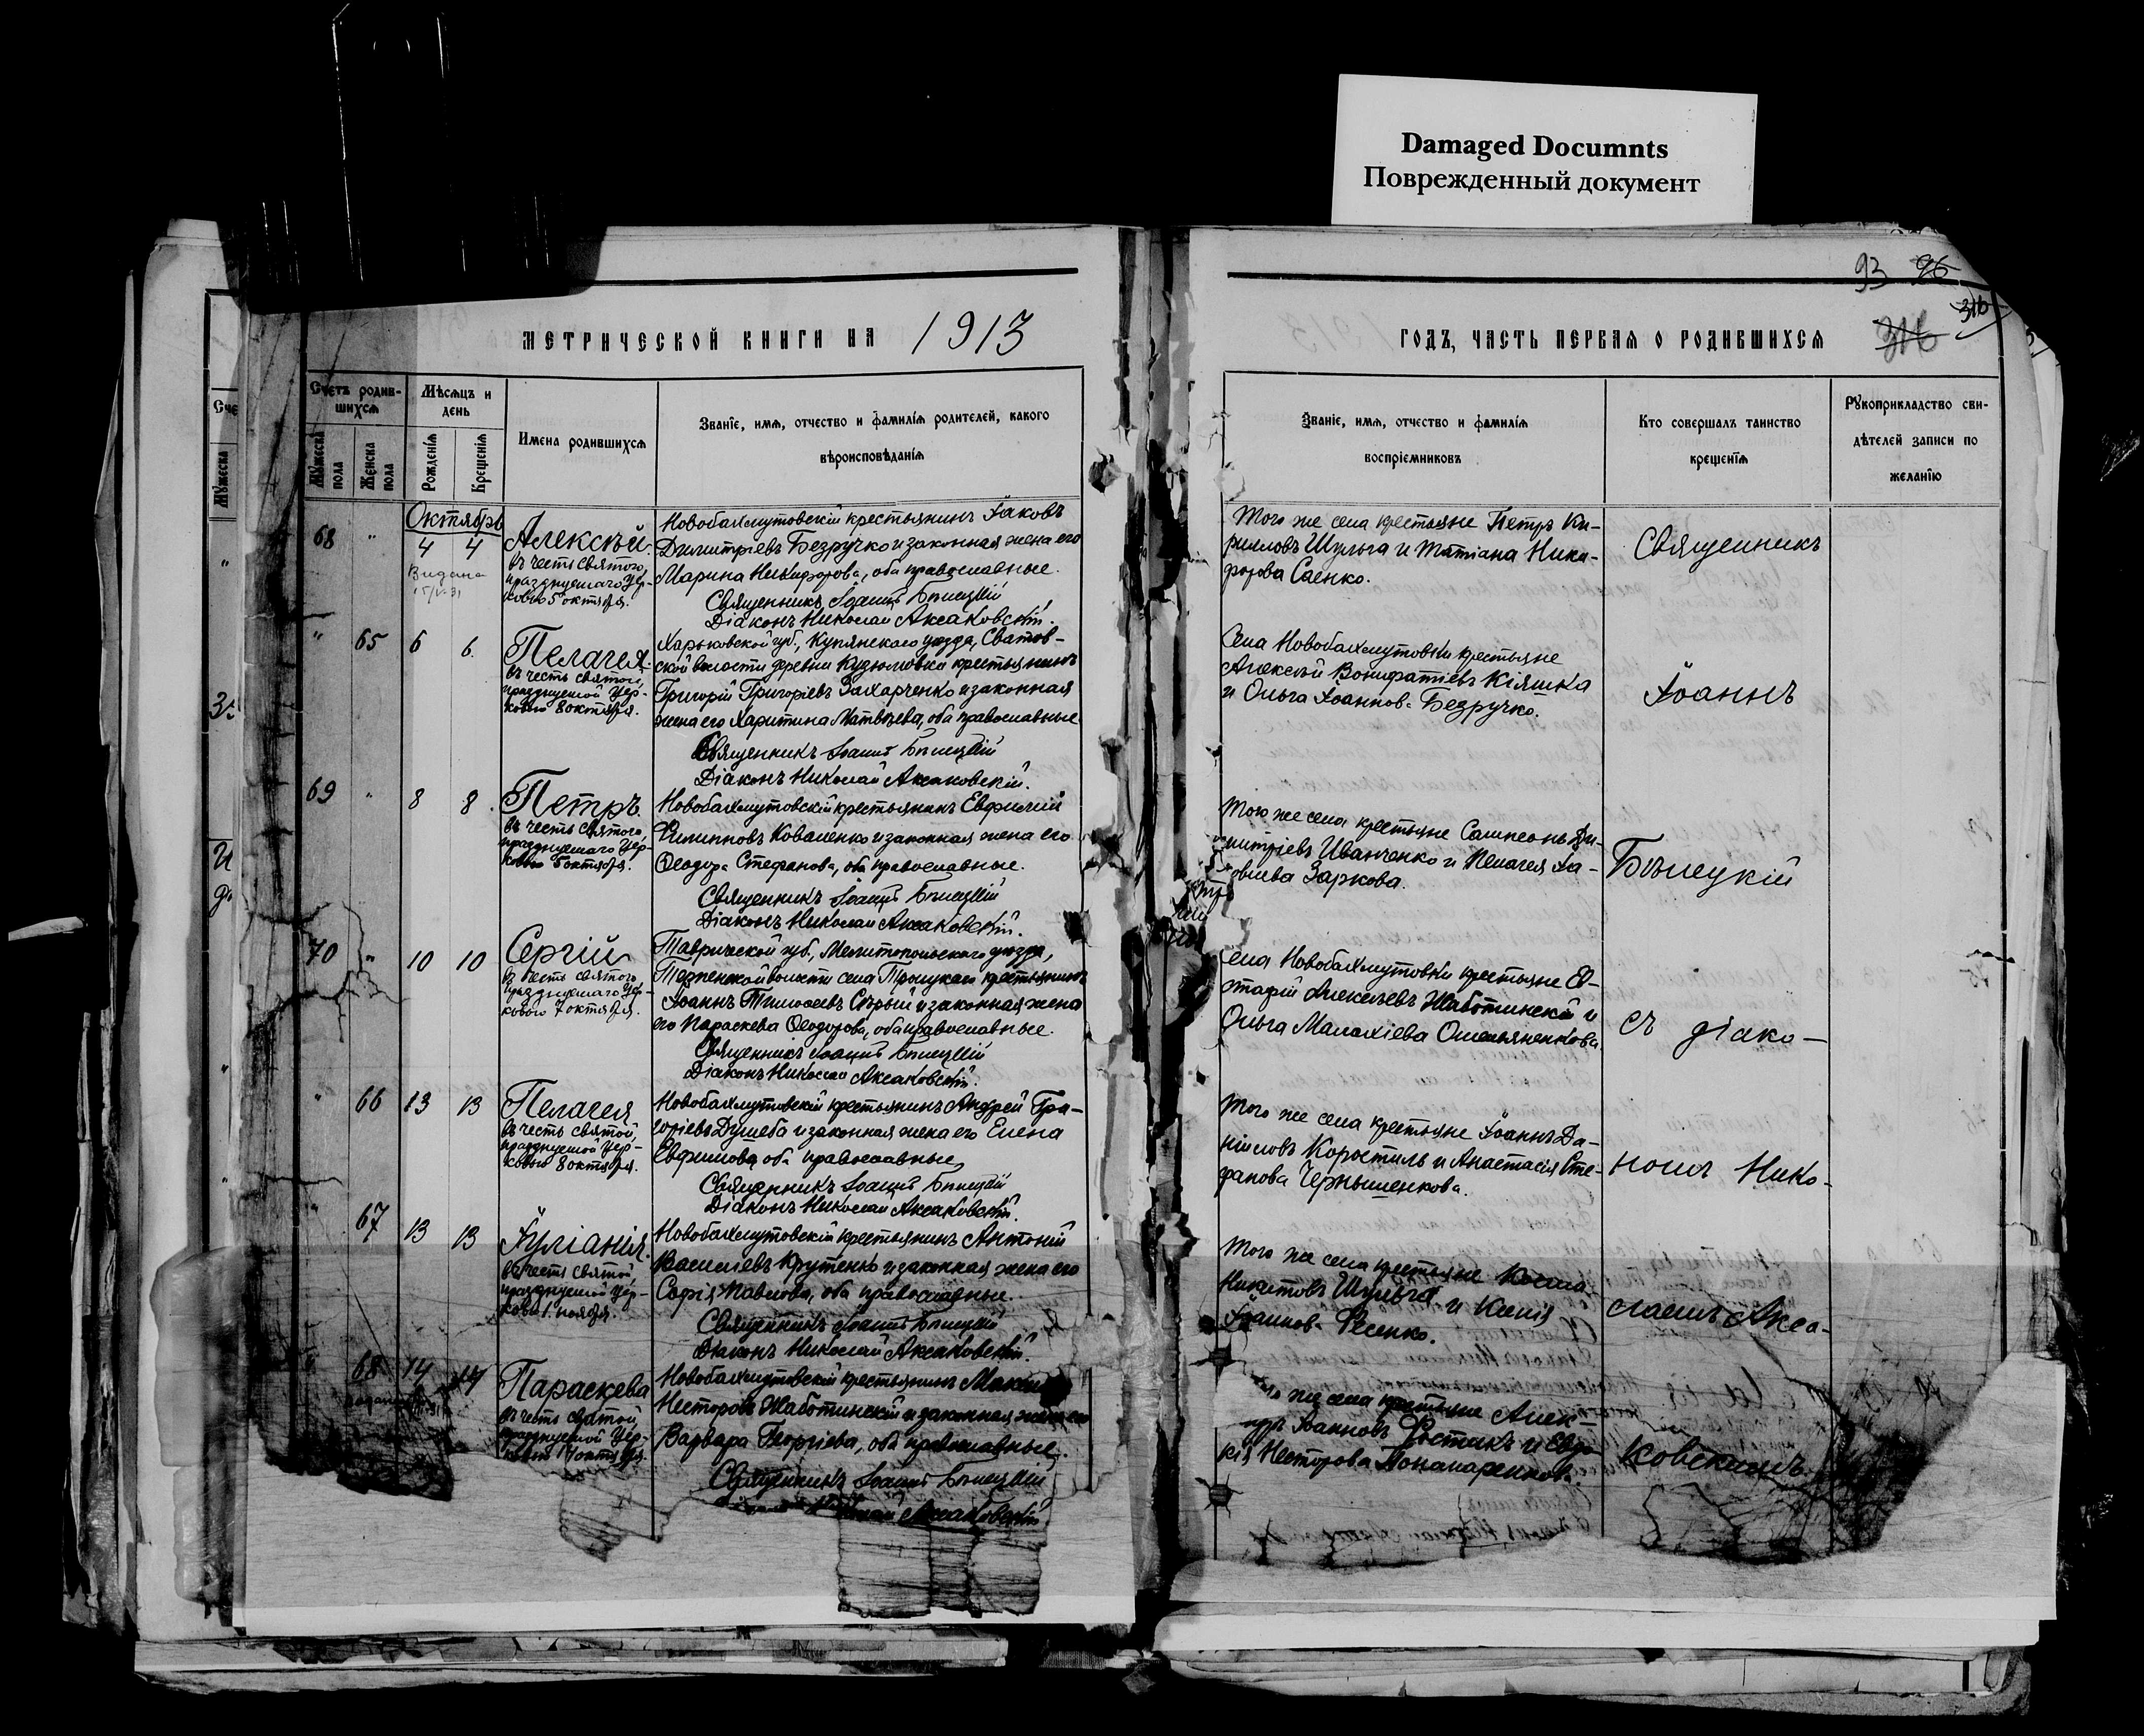 Damaged Documnts
Поврежденный документ
93 96
316
316
МЕТРИЧЕСКОЙ КНИГИ НА 1913
ГОДЪ, ЧАСТЬ ПЕРВАЯ О РОДИВШИХСЯ
Счетъ родив-
шихся
Мужеска пола
Женска пола
Мѣсяцъ и
день
Рожденія
Крещенія
Имена родившихся
Званіе, имя, отчество и фамилія родителей, какого
вѣроисповѣданія
Званіе, имя, отчество и фамилія
воспріемниковъ
Кто совершалъ таинство
крещенія
Рукоприкладство сви-
дѣтелей записи по
желанію
Октябрь
68 " 4 4
Видана
Алексѣй
въ честь святого,
празднуемаго Цер-
ковью 5 октября.
Новобахмутовскій крестьянинъ Іаковъ
Димитріевъ Безручко и законная жена его
Марина Никифорова, оба православные.
Священникъ Іоаннъ Бѣлецкій
Діаконъ Николай Аксаковскій.
Того же села крестьяне Петръ Ки-
рилловъ Шульга и Татіана Ники-
форова Саенко.
Священникъ
" 65 6 6.
Пелагея
въ честь святой,
празднуемой Цер-
ковью 8 октября.
Харьковской губ., Купянскаго уѣзда, Сватов-
ской волости деревни Кузюмовки крестьянинъ
Григорій Григоріевъ Захарченко и законная
жена его Харитина Матвѣева, оба православные.
Священникъ Іоаннъ Бѣлецкій
Діаконъ Николай Аксаковскій.
Села Новобахмутовки крестьяне
Алексѣй Вонифатіевъ Кіяшка
и Ольга Іоаннова Безручко.
Іоаннъ
69 " 8 8.
Петръ
въ честь святого,
празднуемаго Цер-
ковью 5 октября.
Новобахмутовскій крестьянинъ Евфимій
Филипповъ Коваленко и законная жена его
Ѳеодора Стефанова, оба православные.
Священникъ Іоаннъ Бѣлецкій
Діаконъ Николай Аксаковскій.
Того же села крестьяне Сампсонъ Ди-
митріевъ Иванченко и Пелагея
Заркова.
Бѣлецкій
70 " 10 10
Сергій
въ честь святого,
празднуемаго Цер-
ковью 7 октября.
Таврической губ., Мелитопольскаго уѣзда,
волости села крестьянинъ
Іоаннъ Тимоѳеевъ Сѣрый и законная жена
его Параскева Ѳеодорова, оба православные.
Священникъ Іоаннъ Бѣлецкій
Діаконъ Николай Аксаковскій.
Села Новобахмутовки крестьяне Ев-
стафій Алексѣевъ Жаботинскій и
Ольга Малахіева Омельяненкова.
съ діако-
" 66 13 13
Пелагея
въ честь святой,
празднуемой Цер-
ковью 8 октября.
Новобахмутовскій крестьянинъ Андрей Гри-
горіевъ Дулеба и законная жена его Елена
Евфимова, оба православные,
Священникъ Іоаннъ Бѣлецкій
Діаконъ Николай Аксаковскій.
Того же села крестьяне Іоаннъ Да-
ніиловъ Коростиль и Анастасія Сте-
фанова Чернышенкова.
номъ Нико-
" 67 13 13
Іуліанія.
въ честь святой,
празднуемой Цер-
ковью 1 ноября.
Новобахмутовскій крестьянинъ Антоній
Василіевъ Крутенко и законная жена его
Софія Павлова, оба православные.
Священникъ Іоаннъ Бѣлецкій
Діаконъ Николай Аксаковскій.
Того же села крестьяне Косма
Никитовъ Шульга и Ксенія
Іоаннова Фесенко.
лаемъ Акса-
68 14 14
Параскева
въ честь святой,
празднуемой Цер-
ковью октября.
Новобахмутовскій крестьянинъ
Несторовъ Жаботинскій и законная жена его
Варвара Георгіева, оба православные.
Священникъ Іоаннъ Бѣлецкій
Аксаковскій.
же села крестьяне Алек-
Іоанновъ Фостикъ и Евдо-
кія Несторова
ковскимъ.